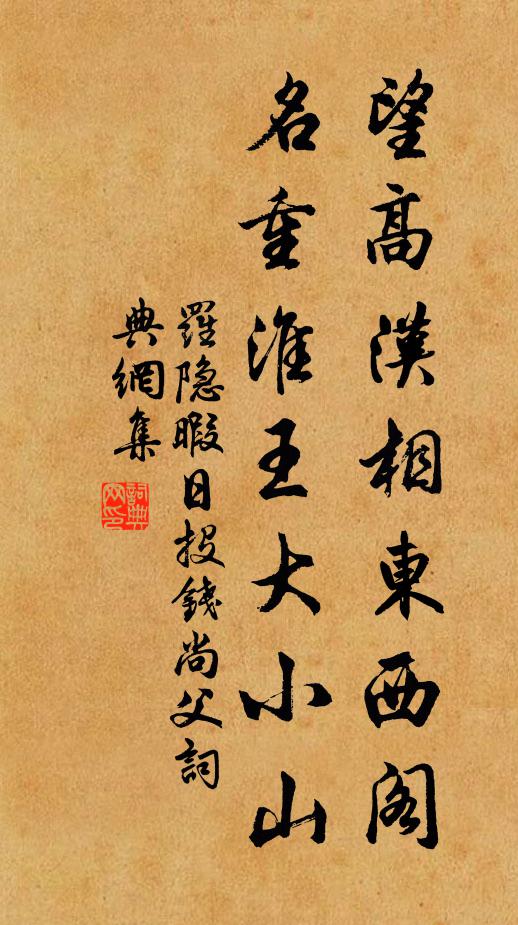 望高漢相東西阁
名重淮王大小山
羅隐暇日投錢尚父詞
典網集
詞典網印